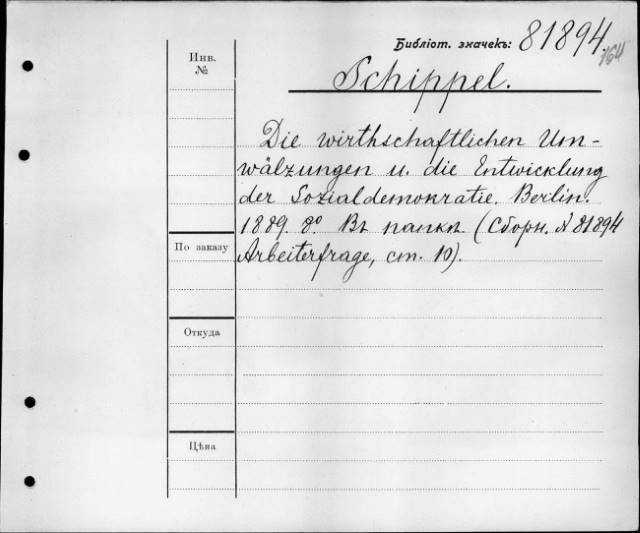 Библіот. значекъ: 81894.
164
Инв.
№
Schippel.
Die wirthschaftlichen Um-
wälzungen u. die Entwicklung
der Sozialdemokratie. Berlin.
1889. 8º. Въ папкѣ. (Сборн. № 81894
Arbeiterfrage, ст. 10).
По заказу
Откуда
Цѣна